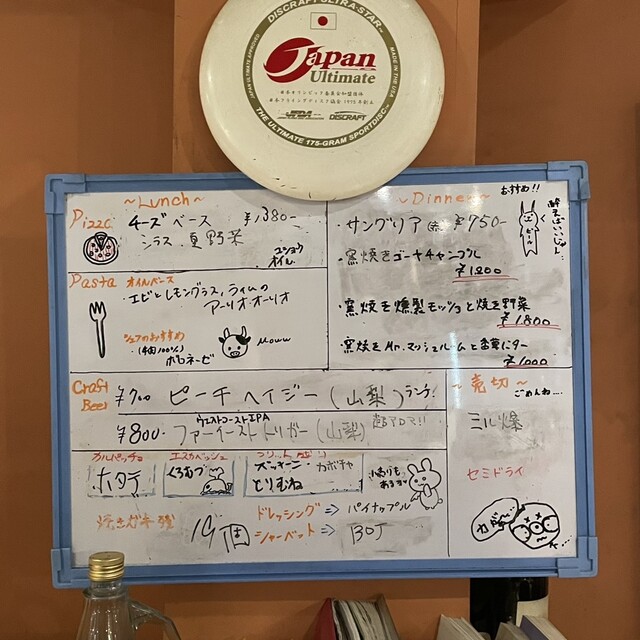 DISCRAFT ULTRA-STAR™
MADE IN THE USA
Japan
Ultimate
日本オリンピック委員会加盟団体
日本フライングディスク協会 1975年創立
DISCRAFT
THE ULTIMATE 175-GRAM SPORTDISC™
~Lunch~
Pizza
チーズベース ¥1380-
シラス、夏野菜
ユショウ
オイル
Pasta オイルベース
・エビとレモングラス、ライムの
アーリオ・オーリオ
シェフのおすすめ
(牛肉100%)
ボロネーゼ
Moww
~Dinner~
おすすめ!!
・サングリア(赤)¥750-
酔えばいいじゃん…
ビール
・窯焼きゴーヤチャンプル
¥1200
・窯焼き燻製モッツョと焼き野菜
¥1800
・窯焼きMr.マッシュルームと香草バター
¥1000
Craft
Beer
¥700 ピーチヘイジー(山梨)ランチ!
ウエストコーストIPA
¥800- ファーイーストトリガー(山梨)超アロマ!!
~売切~
ごめんね…
ミル爆
セミドライ
カルパッチョ
ホタテ
エスカベッシュ
くろむつ
ズッキーニ・カボチャ
とりむね
ドレッシング⇒パイナップル
シャーベット⇒BOJ